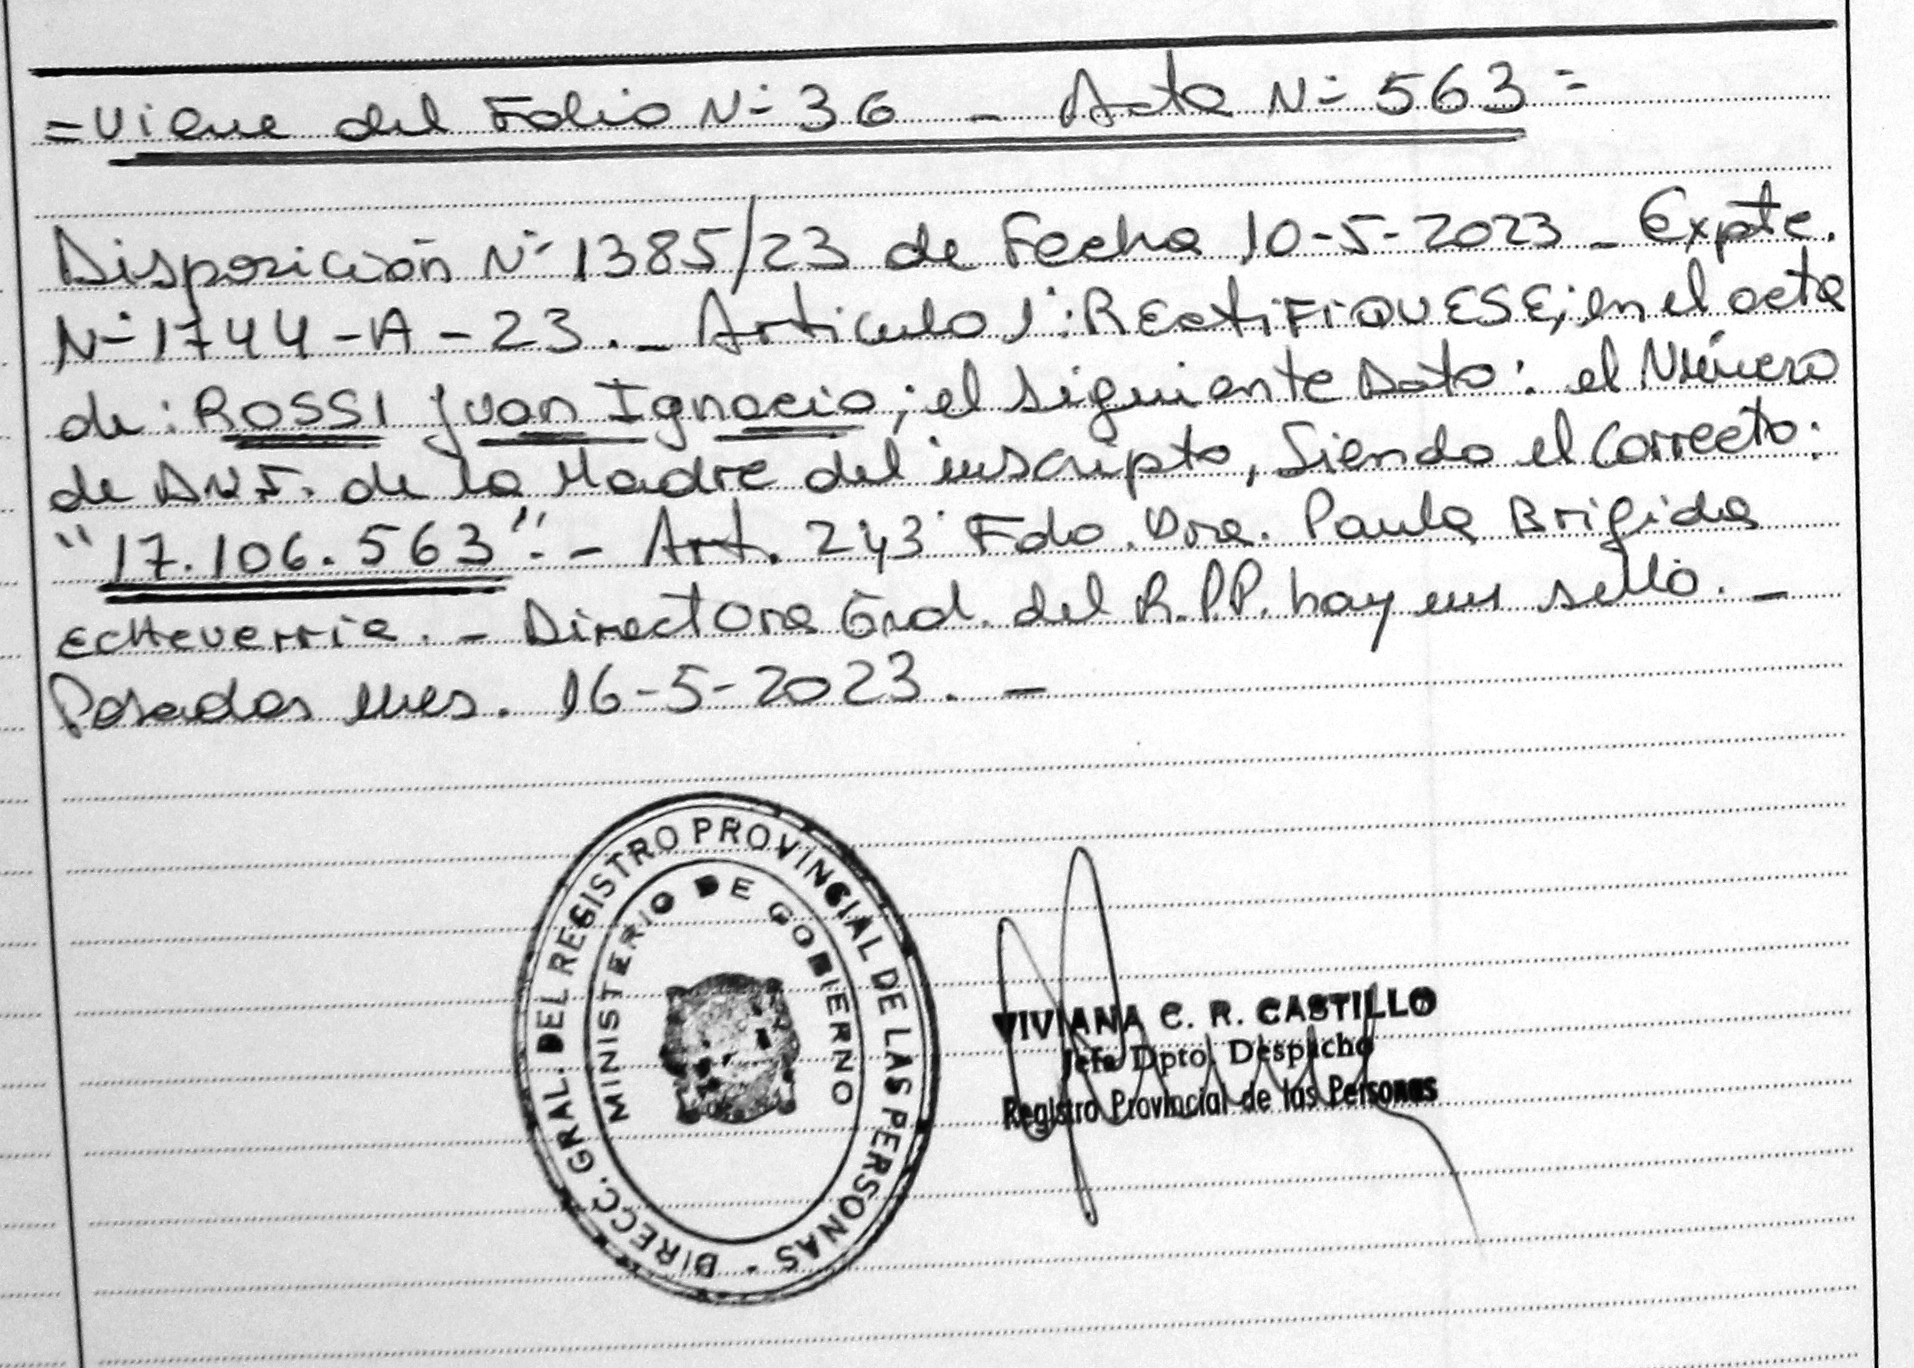 =Viene del Folio Nº 36 - Acta Nº 563=
Disposición Nº 1385/23 de Fecha 10-5-2023 - Expte.
Nº 1744-A-23.- Articulo 1º: REctiFiQUESE; en el acta
de: ROSSI Juan Ignacio; el siguiente Dato: el Número
de D.N.I. de la Madre del inscripto, Siendo el Correcto:
"17.106.563".- Art. 2y3º Fdo. Dra. Paula Brigida
Echeverria.- Directora Gral. del R.P.P. hay un sello.-
Posadas Mnes. 16-5-2023.-
DIRECC. GRAL. DEL REGISTRO PROVINCIAL DE LAS PERSONAS -
MINISTERIO DE GOBIERNO
VIVIANA C. R. CASTILLO
Jefe Dpto. Despacho
Registro Provincial de las Personas